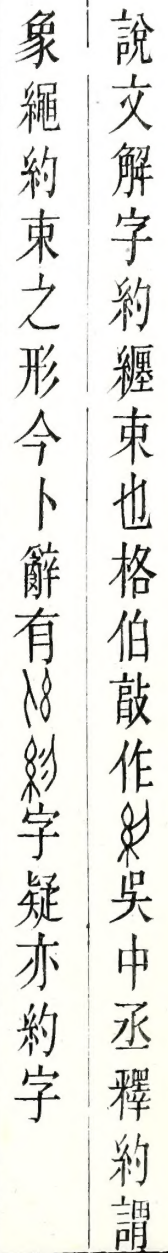 說文解字約纏束也格伯敲作吳中丞釋約謂
象繩約束之形今卜辭有字疑亦約字